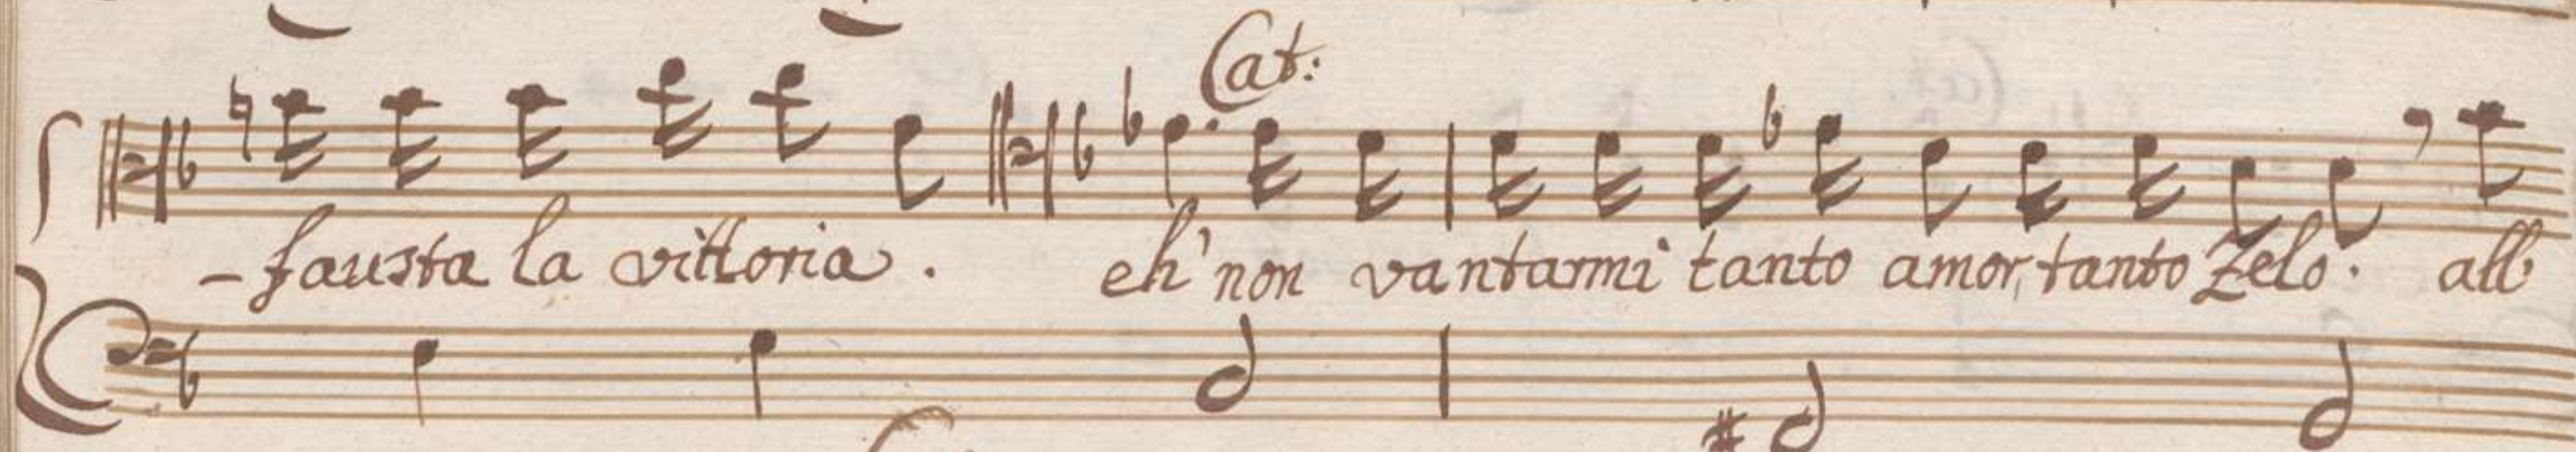 Cat:
-fausta la vittoria. eh' non vantarmi tanto amor, tanto Zelo. all